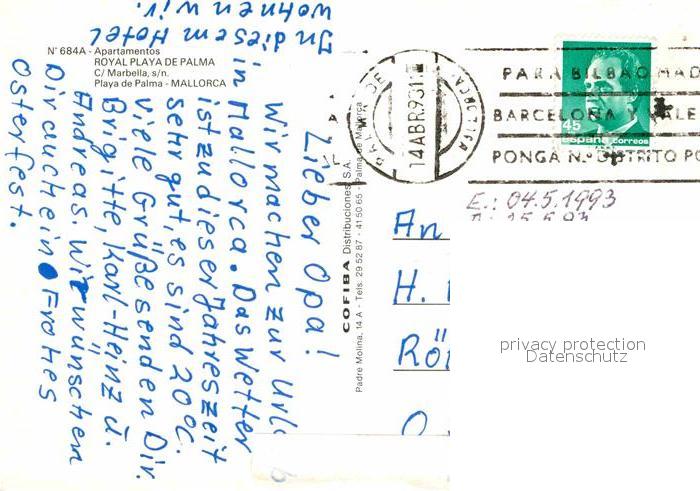 In diesem Hotel
wohnen wir.
N° 684A - Apartamentos
ROYAL PLAYA DE PALMA
C/ Marbella, s/n.
Playa de Palma - MALLORCA
Lieber Opa!
Wir machen zur
in Mallorca. Das Wetter
ist zu dieser Jahreszeit
sehr gut, es sind 20°C.
Viele Grüße senden Dir.
Brigitte, Karl-Heinz ü.
Andreas. Wir wünschen
Dir auch ein Frohes
Osterfest.
COFIBA Distribuciones, S.A.
Padre Molina, 14 A - Tels: 29 52 87 - 41 50 65 - Palma de Mallorca
14 ABR 93
PARA BILBAO MAD
BARCELONA Y VALE
PONGA N.º DISTRITO PO
45
españa correos
E.: 04.5.1993
An
H.
privacy protection
Datenschutz